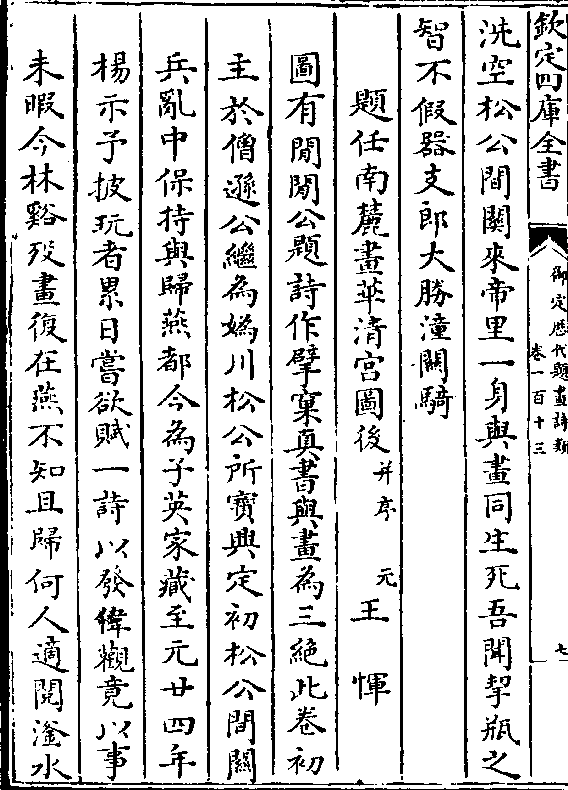 欽定四庫全書
御定歷代題畫詩類
卷一百十三
七
洗空松公間關來帝里一身與畫同生死吾聞挈瓶之
智不假器支郎大勝潼關騎
題任南麓畫華清宮圖後 并序 元 王惲
圖有閒閒公題詩作擘窠真書與畫為三絶此卷初
主於僧遜公繼為媯川松公所寳興定初松公間關
兵亂中保持與歸燕都今為子英家藏至元廿四年
楊示予披玩者累日嘗欲賦一詩以發偉觀竟以事
未暇今林谿殁畫復在燕不知且歸何人適閱滏水